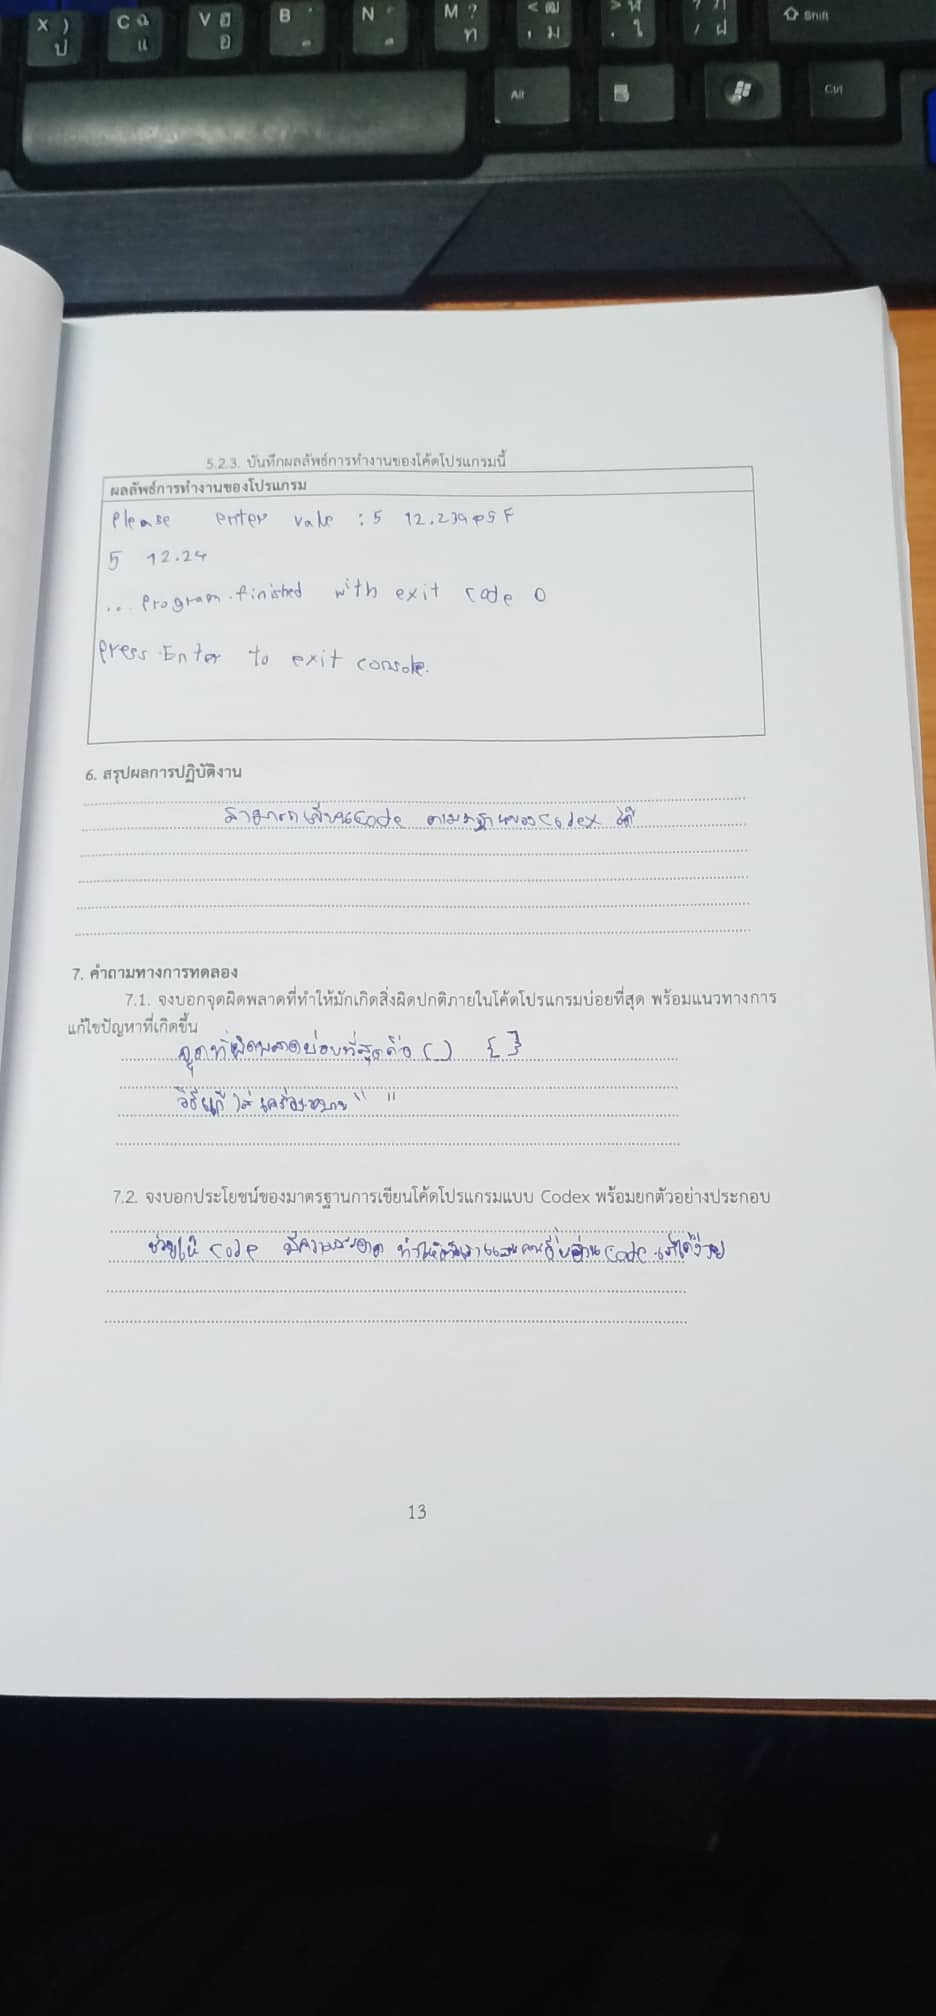 X ) ป
C ฉ แ
V ฮ อ
B
N
M ? ท
< ฒ , ม
> ฬ . ใ
? ฦ / ฝ
Shift
Alt
Ctrl
5.2.3. บันทึกผลลัพธ์การทำงานของโค้ดโปรแกรมนี้
ผลลัพธ์การทำงานของโปรแกรม
Please enter value : 5 12.239
5 12.24
... program finished with exit code 0
press Enter to exit console.
6. สรุปผลการปฏิบัติงาน
สามารถเขียนCode ตามมาฐานของCodex ได้
7. คำถามทางการทดลอง
7.1. จงบอกจุดผิดพลาดที่ทำให้มักเกิดสิ่งผิดปกติภายในโค้ดโปรแกรมบ่อยที่สุด พร้อมแนวทางการ
แก้ไขปัญหาที่เกิดขึ้น
จุดที่ผิดพลาดบ่อยที่สุดคือ ( ) { }
วิธีแก้ ใส่เครื่องหมาย " "
7.2. จงบอกประโยชน์ของมาตรฐานการเขียนโค้ดโปรแกรมแบบ Codex พร้อมยกตัวอย่างประกอบ
ช่วยให้ code มีความสะอาด ทำให้ และคนอื่นอ่านcode ได้ง่าย
13